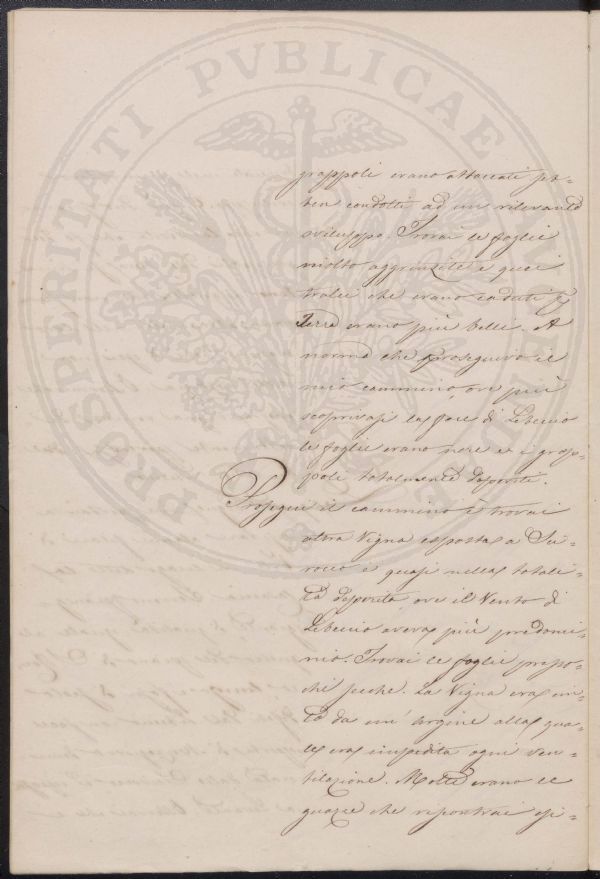 grappoli erano attaccati seb=
ben condotti ad un rilevante
sviluppo. Trovai le foglie
molto aggrinzite e quei
tralci che erano caduti per
Terra erano più belli. A
norma che proseguivo il
mio cammino, ove più
scoprivasi la foce di Libeccio
le foglie erano nere e i grap=
poli totalmente deperiti.
Proseguii il cammino e trovai
altra Vigna esposta a Sci=
rocco e quasi nella totali=
tà deperita, ove il Vento di
Libeccio aveva più predomi=
nio. Trovai le foglie presso=
ché secche. La Vigna era cin=
ta da un' argine alla qua=
le era impedita ogni ven=
tilazione. Molte erano le
guazze che riscontrai esi=
PROSPERITATI PVBLICAE